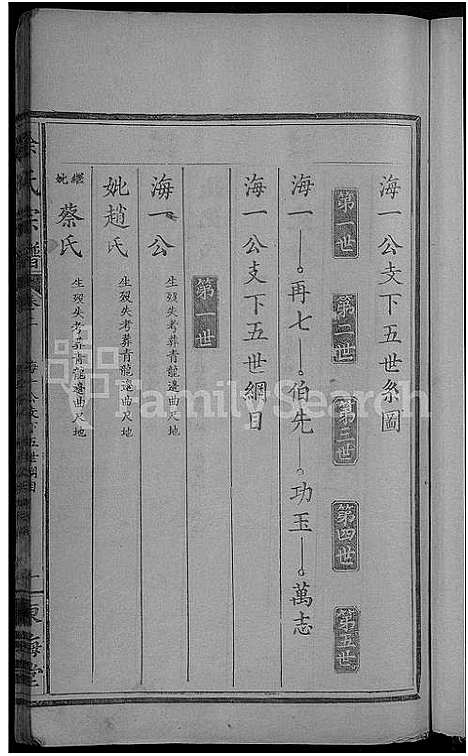 海一公支下五世系圖
第一世 第二世 第三世 第四世 第五世
海一 再七 伯先 功玉 萬志
海一公支下五世綱目
第一世
海一公 生殁失考葬青龍邊曲尺地
妣趙氏 生殁失考葬青龍邊曲尺地
繼妣蔡氏 生殁失考葬青龍邊曲尺地
徐氏宗譜
海一公支下五世綱目
東海堂
FamilySearch